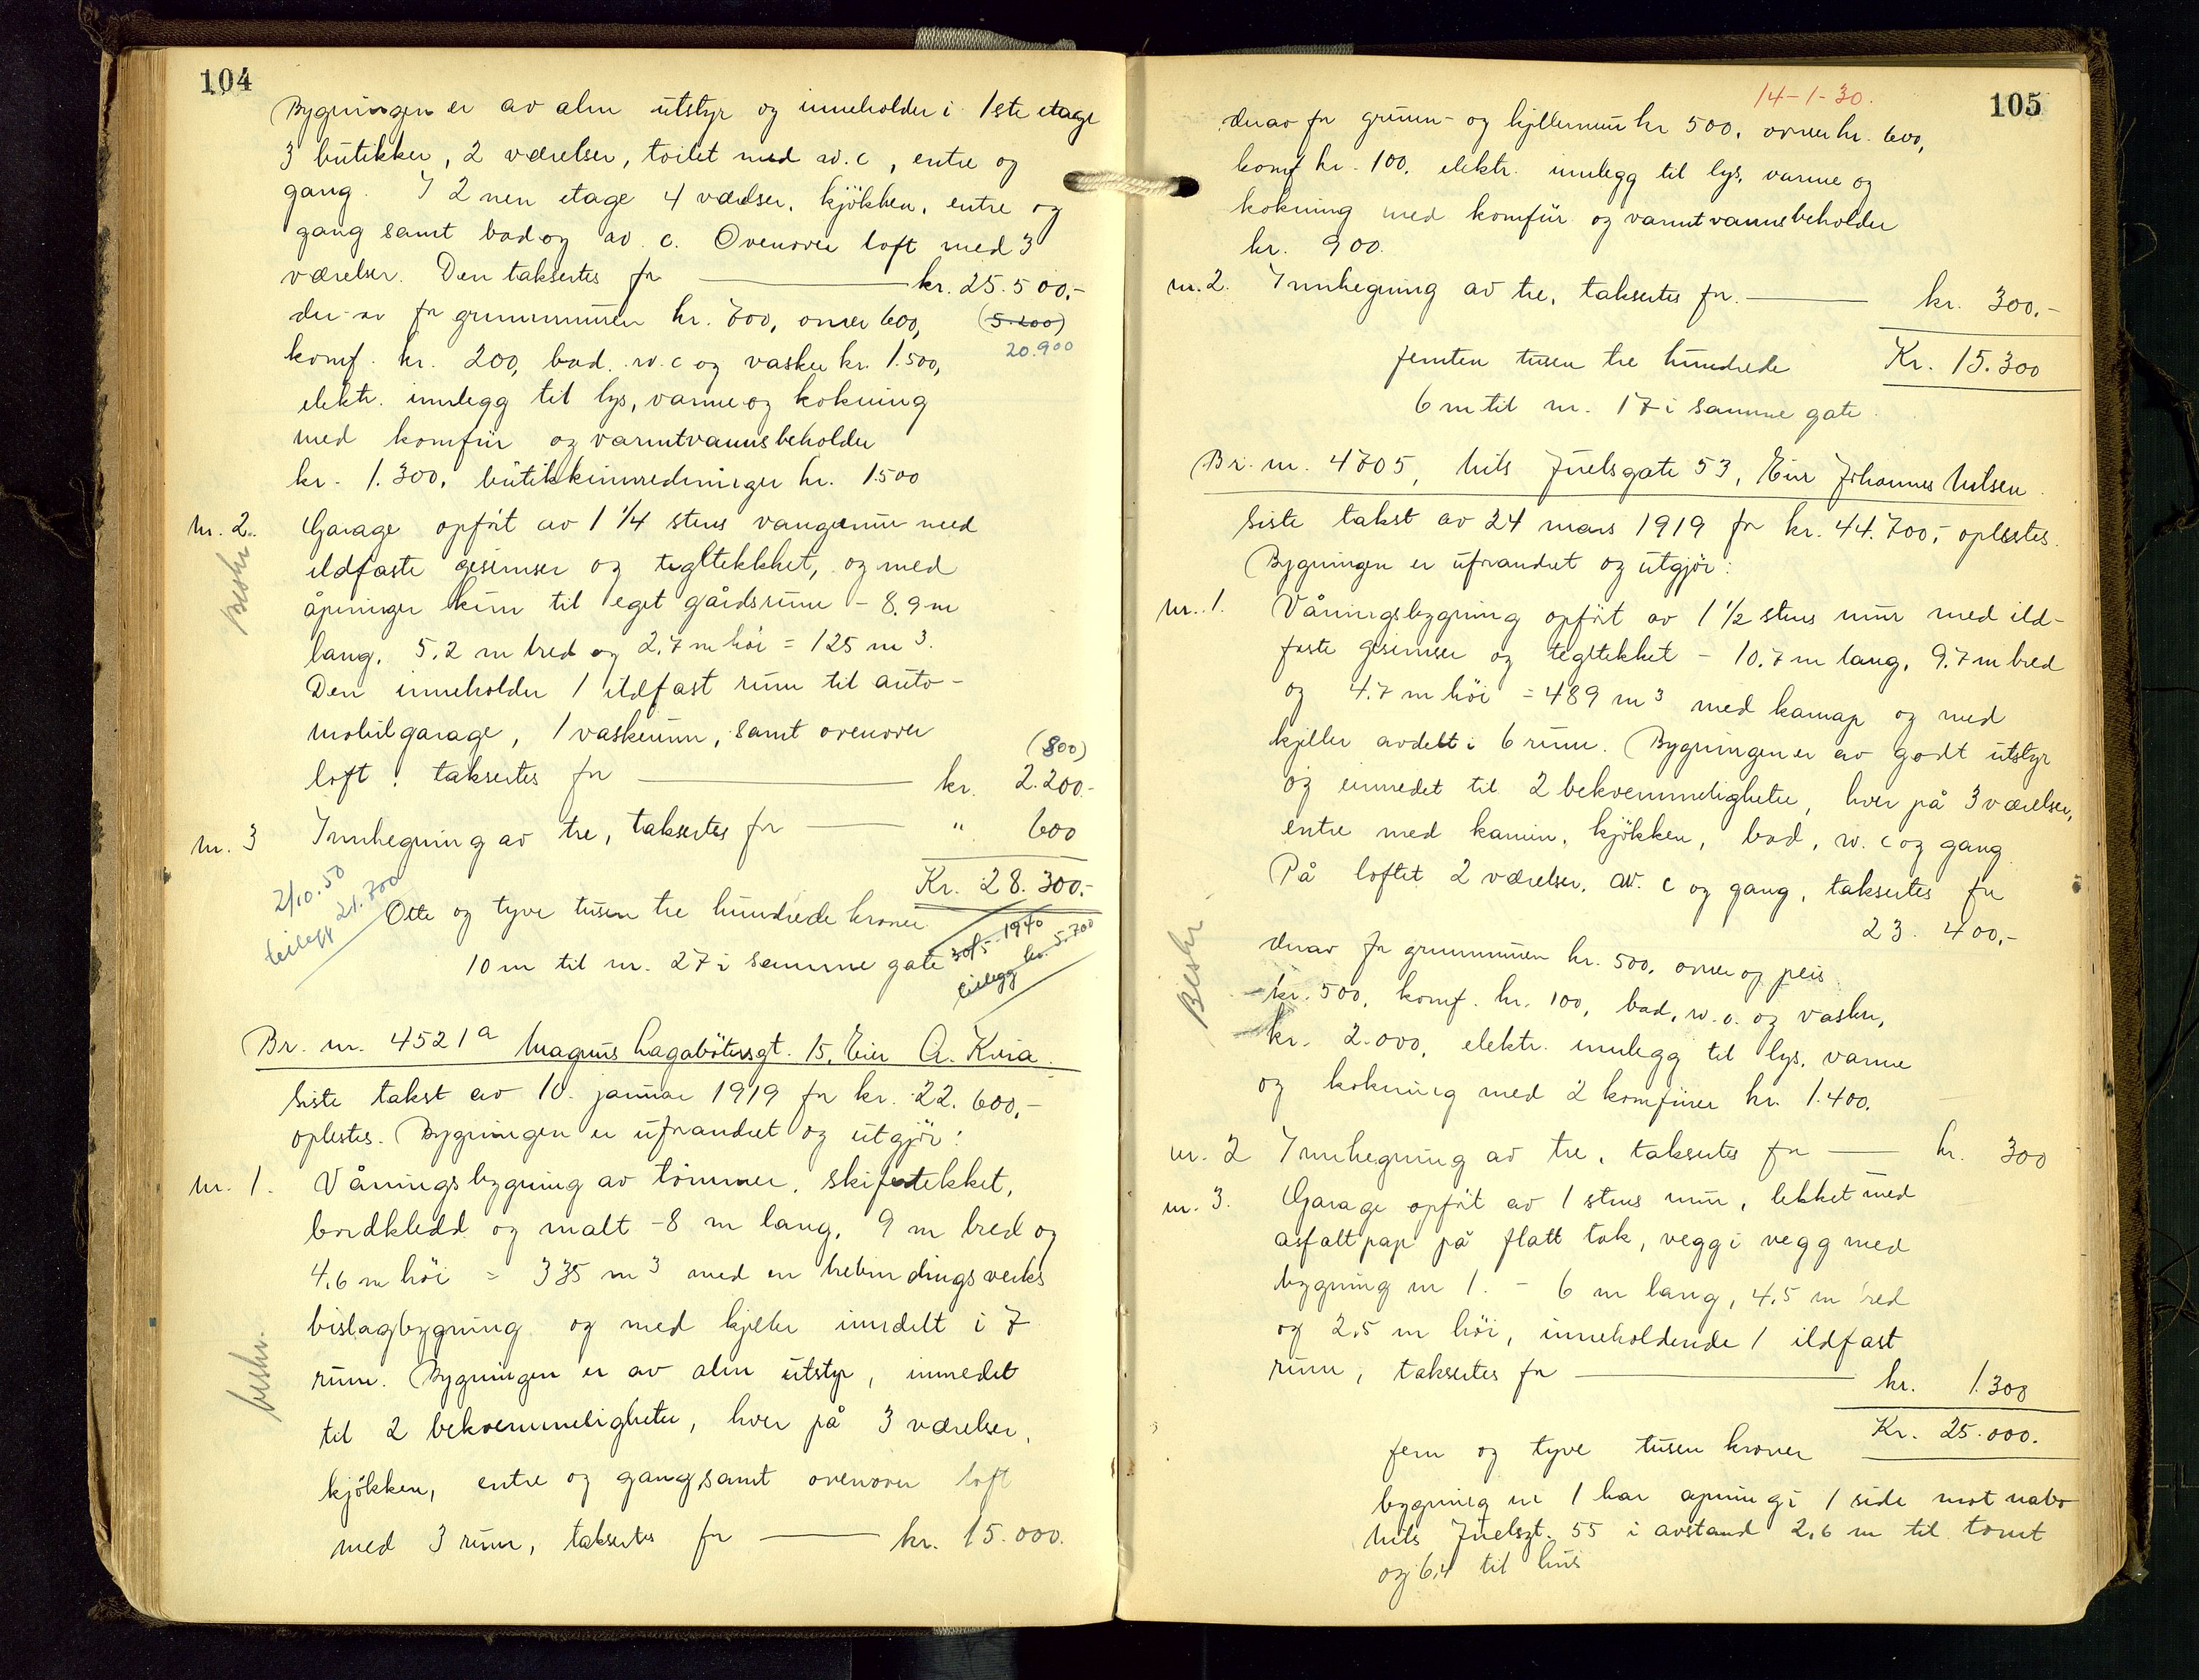 104
Bygningen er av alm utstyr og inneholder i 1ste etage
3 butikker, 2 værelser, toilet med w.c, entre og
gang. I 2nen etage 4 værelser, kjökken, entre og
gang samt bad og w.c. Ovenover loft med 3
værelser. Den taksertes for kr. 25.500,-
der av for grunnmuren kr. 700, ovner 600, (5.200)
komf. kr. 200, bad. w.c og vasker kr. 1.500, 20.900
elektr. innlegg til lys, varme og kokning
med komfür og varmtvannsbeholder
kr. 1.300, butikkinnredninger kr. 1500
Nr. 2. Garage opfört av 1 1/4 stens vangemur med
Beskr
ildfaste gesimser og tegltekket, og med
åpninger kun til eget gårdsrum - 8,9 m
lang, 5,2 m bred og 2,7 m höi = 125 m3.
Den inneholder 1 ildfast rum til auto-
mobilgarage, 1 vaskerum, samt ovenover
(800)
loft, taksertes for kr. 2.200.-
Nr. 3 Innhegning av tre, taksertes for " 600
Kr. 28.300.-
2/10.50
tillegg 21.700
Otte og tyve tusen tre hundrede kroner
30/5-1940
tillegg kr. 5.700
10 m til nr. 27 i samme gate
Br. nr. 4521a Magnus Lagabötersgt. 15, Eier A. Kvia.
Siste takst av 10. januar 1919 for kr. 22.600,-
oplestes. Bygningen er uforandret og utgjör:
Nr. 1. Våningsbygning av tömmer, skifertekket,
bordkledd og malt - 8 m lang, 9 m bred og
4,6 m höi = 335 m3 med en utbindingsverks
bislagbygning og med kjeller inndelt i 7
beskr.
rum. Bygningen er av alm utstyr, innredet
til 2 bekvemmeligheter, hver på 3 værelser,
kjökken, entre og gang, samt ovenover loft
med 3 rum, taksertes for kr. 15.000.
14-1-30.
105
derav for grunn- og kjellermur kr 500, ovner kr. 600,
komf kr. 100, elektr. innlegg til lys, varme og
kokning med komfür og varmtvannsbeholder
kr. 900.
nr. 2. Innhegning av tre, taksertes for. kr. 300.-
femten tusen tre hundrede Kr. 15.300
6 m til nr. 17 i samme gate.
Br. nr. 4705, Nils Juelsgate 53, Eier Johannes Nilsen
Siste takst av 24 mars 1919 for kr. 44.700,- oplestes.
Bygningen er uforandret og utgjör:
nr. 1. Våningsbygning opfört av 1 1/2 stens mur med ild-
faste gesimser og tegltekket - 10,7 m lang, 9,7 m bred
og 4,7 m höi = 489 m3 med karnap og med
kjeller avdelt i 6 rum. Bygningen er av godt utstyr
og innredet til 2 bekvemmeligheter, hver på 3 værelser,
entre med kamin, kjökken, bad, w.c og gang.
På loftet 2 værelser, w.c og gang, taksertes for
23.400,-
Beskr.
derav for grunnmuren kr. 500, ovner og peis
kr. 500, komf. kr. 100, bad, w.c. og vasker,
kr. 2.000, elektr. innlegg til lys, varme
og kokning med 2 komfürer kr. 1.400.
nr. 2 Innhegning av tre, taksertes for kr. 300
nr. 3. Garage opfört av 1 stens mur, tekket med
asfaltpap på flatt tak, vegg i vegg med
bygning nr 1. - 6 m lang, 4,5 m bred
og 2,5 m höi, inneholdende 1 ildfast
rum, taksertes for kr. 1.300
Kr. 25.000.
fem og tyve tusen kroner
bygning nr 1 har åpning i 1 side mot nabo
Nils Juelsgt. 55 i avstand 2,6 m til tomt
og 6,4 til hus